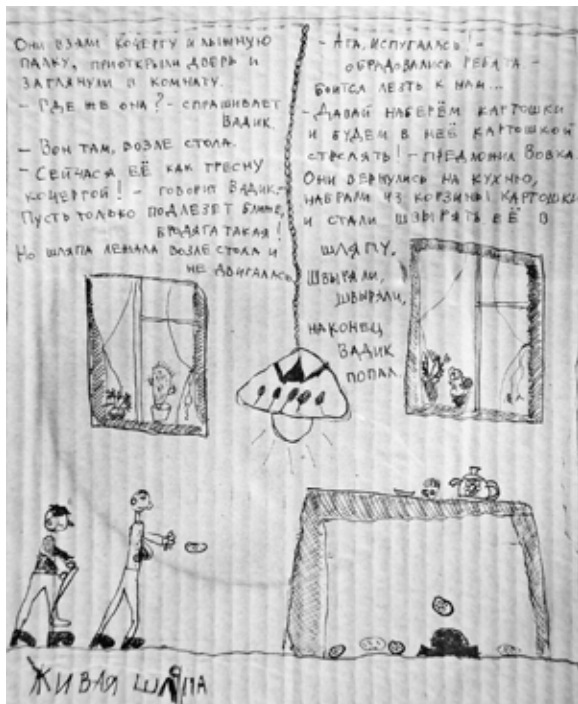 Они взяли кочергу и лыжную
палку, приоткрыли дверь и
заглянули в комнату.
- Где же она? - спрашивает
Вадик.
- Вон там, возле стола.
- Сейчас я её как тресну
кочергой! - говорит Вадик. -
Пусть только подлезет ближе,
бродяга такая!
Но шляпа лежала возле стола и
не двигалась.
- Ага, испугалась! -
обрадовались ребята. -
боится лезть к нам...
- Давай наберём картошки
и будем в неё картошкой
стрелять! - предложил Вовка.
Они вернулись на кухню,
набрали из корзины картошки
и стали швырять её в
шляпу.
Швыряли,
швыряли,
наконец
Вадик
попал.
Живая шляпа